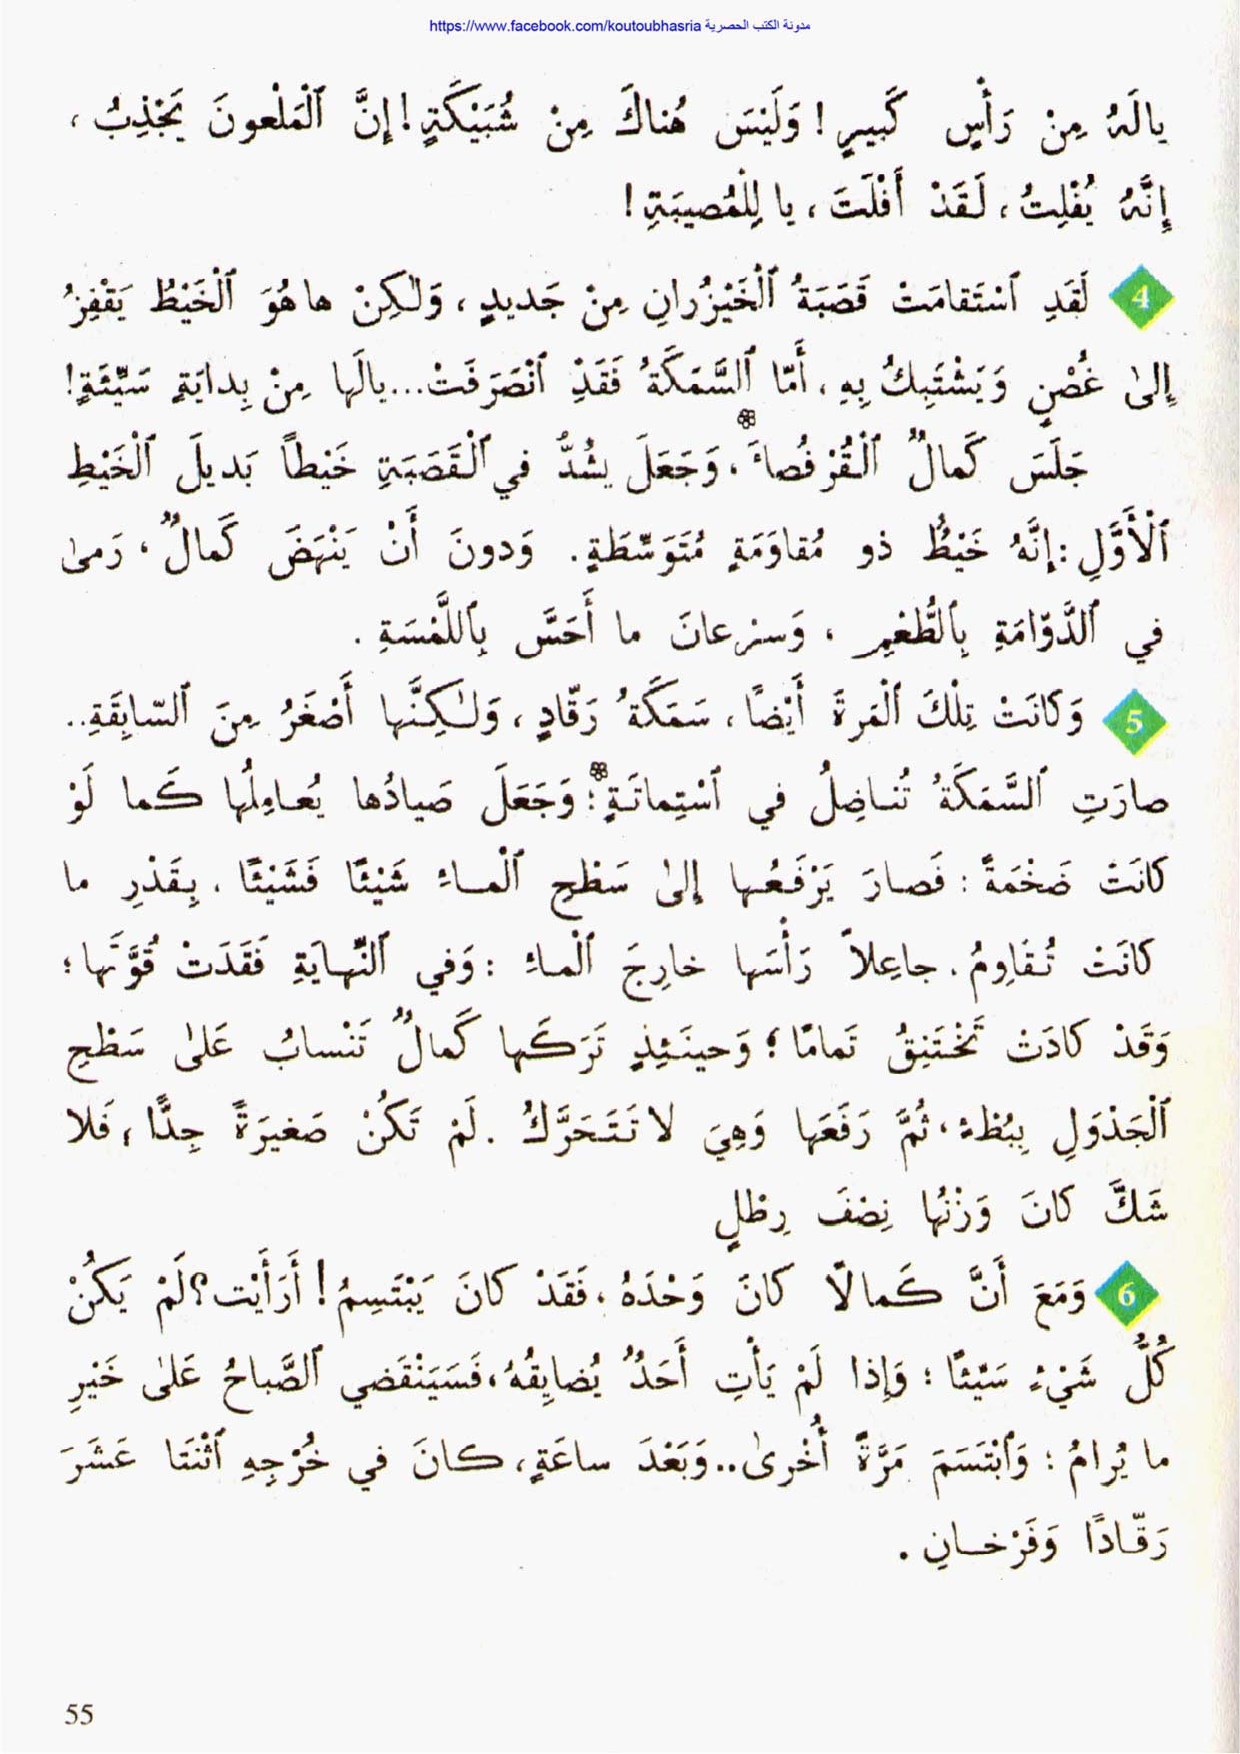 https://www.facebook.com/koutoubhasria مدونة الكتب الحصرية
يالَهُ مِنْ رَأْسٍ كَبيرٍ ! وَلَيْسَ هُناكَ مِنْ شُبَيْكَةٍ ! إِنَّ ٱلْمَلْعونَ يَجْذِبُ ،
إِنَّهُ يُفْلِتُ ، لَقَدْ أَفْلَتَ ، يا لِلْمُصيبَةِ !
4 لَقَدِ ٱسْتَقامَتْ قَصَبَةُ ٱلْخَيْزُرانِ مِنْ جَديدٍ ، وَلٰكِنْ ها هُوَ ٱلْخَيْطُ يَقْفِزُ
إِلىٰ غُصْنٍ وَيَشْتَبِكُ بِهِ ، أَمّا ٱلسَّمَكَةُ فَقَدِ ٱنْصَرَفَتْ... يالَها مِنْ بِدايَةٍ سَيِّئَةٍ !
جَلَسَ كَمالٌ ٱلْقُرْفُصاءَ ، وَجَعَلَ يشُدُّ في ٱلْقَصَبَةِ خَيْطاً بَديلَ ٱلْخَيْطِ
ٱلْأَوَّلِ : إِنَّهُ خَيْطٌ ذو مُقاوَمَةٍ مُتَوَسِّطَةٍ . وَدونَ أَنْ يَنْهَضَ كَمالٌ ، رَمىٰ
في ٱلدَّوّامَةِ بِٱلطُّعْمِ ، وَسرْعانَ ما أَحَسَّ بِٱللَّمْسَةِ .
5 وَكانَتْ تِلْكَ ٱلْمَرةَ أَيْضًا ، سَمَكَةُ رَقّادٍ ، وَلٰكِنَّها أَصْغَرُ مِنَ ٱلسّابِقَةِ ..
صارَتِ ٱلسَّمَكَةُ تُناضِلُ في ٱسْتِماتَةٍ ؛ وَجَعَلَ صَيادُها يُعامِلُها كَما لَوْ
كانَتْ ضَخْمَةً : فَصارَ يَرْفَعُها إِلىٰ سَطْحِ ٱلْماءِ شَيْئًا فَشَيْئًا . بِقَدْرِ ما
كانَتْ تُقاوِمُ . جاعِلاً رَأْسَها خارِجَ ٱلْماءِ : وَفي ٱلنِّهايَةِ فَقَدَتْ قُوَّتَها ؛
وَقَدْ كادَتْ تَخْتَنِقُ تَمامًا ؛ وَحينَئِذٍ تَرَكَها كَمالٌ تَنْسابُ عَلىٰ سَطْحِ
ٱلْجَدْوَلِ بِبُطْءٍ ، ثُمَّ رَفَعَها وَهِيَ لا تَتَحَرَّكُ . لَمْ تَكُنْ صَغيرَةً جِدًّا ، فَلا
شَكَّ كانَ وَزْنُها نِصْفَ رِطْلٍ
6 وَمَعَ أَنَّ كَمالًا كانَ وَحْدَهُ ، فَقَدْ كانَ يَبْتَسِمُ ! أَرَأَيْت ؟ لَمْ يَكُنْ
كُلُّ شَيْءٍ سَيِّئًا : وَإِذا لَمْ يَأْتِ أَحَدٌ يُضايِقُهُ ، فَسَيَنْقَضي ٱلصَّباحُ عَلىٰ خَيْرِ
ما يُرامُ : وَٱبْتَسَمَ مَرَّةً أُخْرىٰ .. وَبَعْدَ ساعَةٍ ، كانَ في خُرْجِهِ ٱثْنَتا عَشَرَ
رَقّادًا وَفَرْخانِ .
55